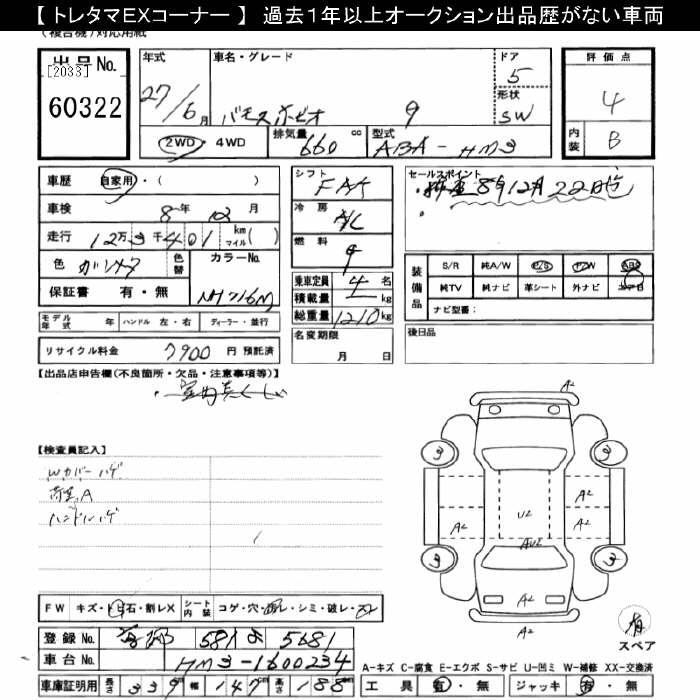 【 トレタマEXコーナー 】 過去1年以上オークション出品歴がない車両
(複合機)対応用紙
出品No.
[2033]
60322
年式
27/6月
車名・グレード
バモスホビオ
ドア
5
形状
SW
評価点
4
内装
B
2WD・4WD
排気量
660 cc
型式
ABA-HM3
車歴 自家用・( )
車検 8年 12月
走行 12万3千401 km マイル( )
色 ガンメタ
色替
カラーNo.
NH716M
保証書 有・無
モデル年式 年 ハンドル 左・右 ディーラー・並行
リサイクル料金 7900 円 預託済
シフト
FAT
冷房
A/C
燃料
乗車定員 4 名
積載量 kg
総重量 1210 kg
名変期限
月 日
セールスポイント
・検査8年12月22日迄
装備品
S/R 純A/W P/S P/W ABS
純TV 純ナビ 革シート 外ナビ エアB
ナビ型番:
後日品
【出品店申告欄(不良箇所・欠品・注意事項等)】
【検査員記入】
Wカバーハゲ
荷室A
ハンドルハゲ
A2
3
3
A2
A2
U2
A2
A2
AU2
3
3
A2
A2
有
スペア
FW キズ・トビ石・割レX シート内装 コゲ・穴・切レ・シミ・破レ・
登録No. 581 5681
車台No. HM3-1600234
車庫証明用 長さ 339 幅 147 高さ 188
A-キズ C-腐食 E-エクボ S-サビ U-凹ミ W-補修 XX-交換済
工具 有・無 ジャッキ 有・無